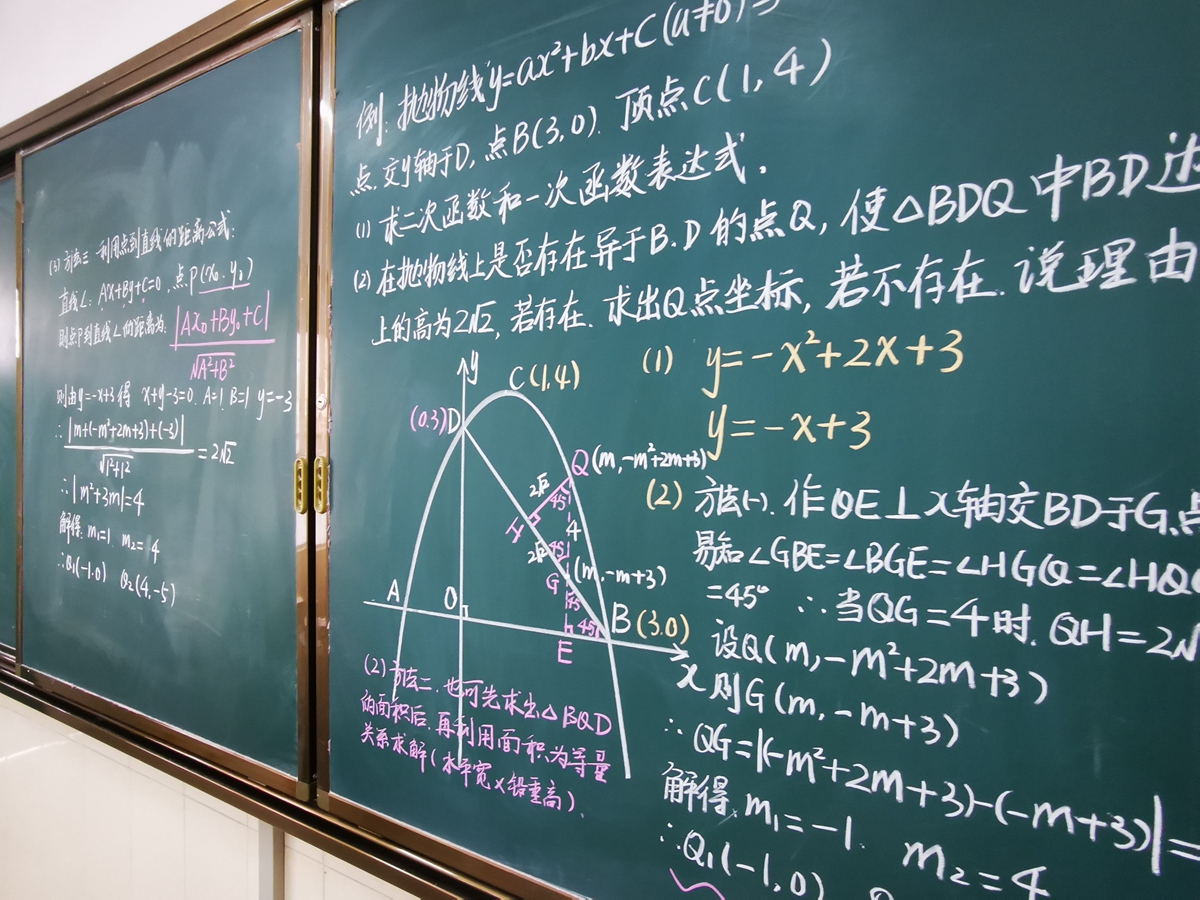 (3) 方法三 利用点到直线的距离公式:
直线L: Ax+By+C=0, 点P(x₀, y₀)
则点P到直线L的距离为: |Ax₀+By₀+C|
√A²+B²
则由y=-x+3得 x+y-3=0. A=1, B=1 y=-3
∴ |m+(-m²+2m+3)+(-3)|
√1²+1² =2√2
∴|m²+3m|=4
解得. m₁=1. m₂=4
∴Q₁(-1.0) Q₂(4,-5)
例: 抛物线y=ax²+bx+C(a≠0)
点.交y轴于D, 点B(3,0). 顶点C(1,4)
(1) 求二次函数和一次函数表达式.
(2) 在抛物线上是否存在异于B.D的点Q, 使△BDQ中BD边
上的高为2√2, 若存在. 求出Q点坐标, 若不存在. 说理由
(1) y=-x²+2x+3
y=-x+3
y
C(1,4)
(0.3)D
Q(m,-m²+2m+3)
2√2
45°
H
4
2√2
45°
(m,-m+3)
G
45
A
O
45°
B(3.0)
E
x
(2) 方法(一). 作QE⊥x轴交BD于G,点
易知∠GBE=∠BGE=∠HGQ=∠HQG
=45° ∴当QG=4时. QH=2√
设Q(m,-m²+2m+3)
则G(m,-m+3)
∴QG=|(-m²+2m+3)-(-m+3)|=
解得. m₁=-1. m₂=4
∴Q₁(-1,0)
(2) 方法二. 也可先求出△BQD
的面积后. 再利用面积为等量
关系求解(水平宽×铅垂高).